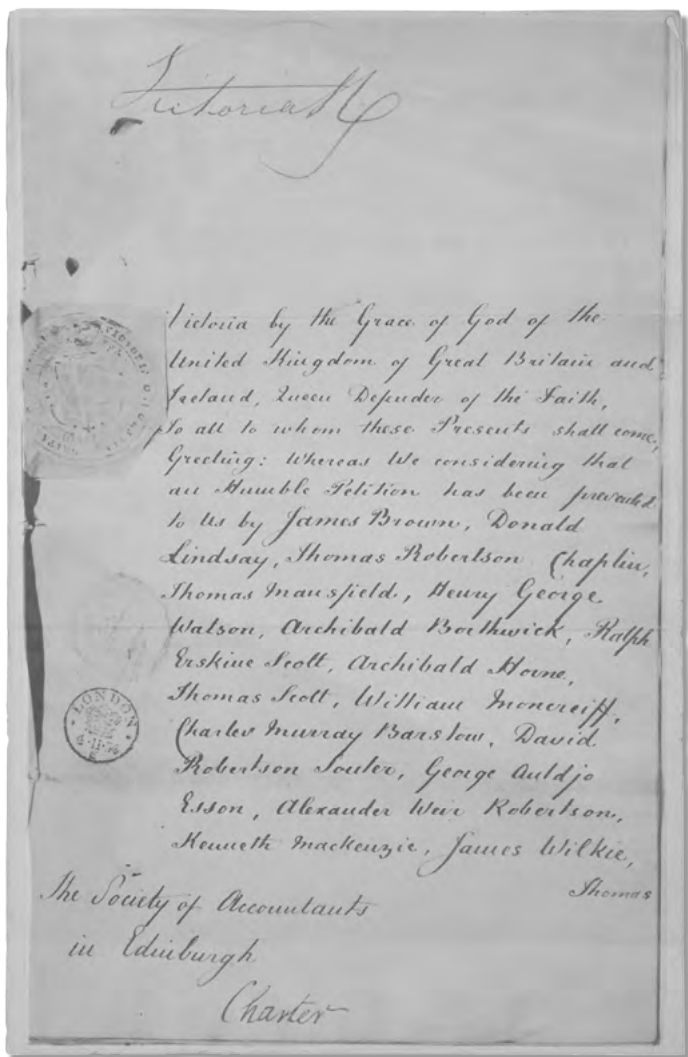 Victoria R
Victoria by the Grace of God of the
United Kingdom of Great Britain and
Ireland, Queen Defender of the Faith,
To all to whom these Presents shall come,
Greeting: Whereas We considering that
an Humble Petition has been presented
to Us by James Brown, Donald
Lindsay, Thomas Robertson Chaplin,
Thomas Mansfield, Henry George
Watson, Archibald Borthwick, Ralph
Erskine Scott, Archibald Horne,
Thomas Scott, William Moncreiff,
Charles Murray Barstow, David
Robertson Souter, George Auldjo
Esson, Alexander Weir Robertson,
Kenneth Mackenzie, James Wilkie,
Thomas
LONDON
The Society of Accountants
in Edinburgh
Charter